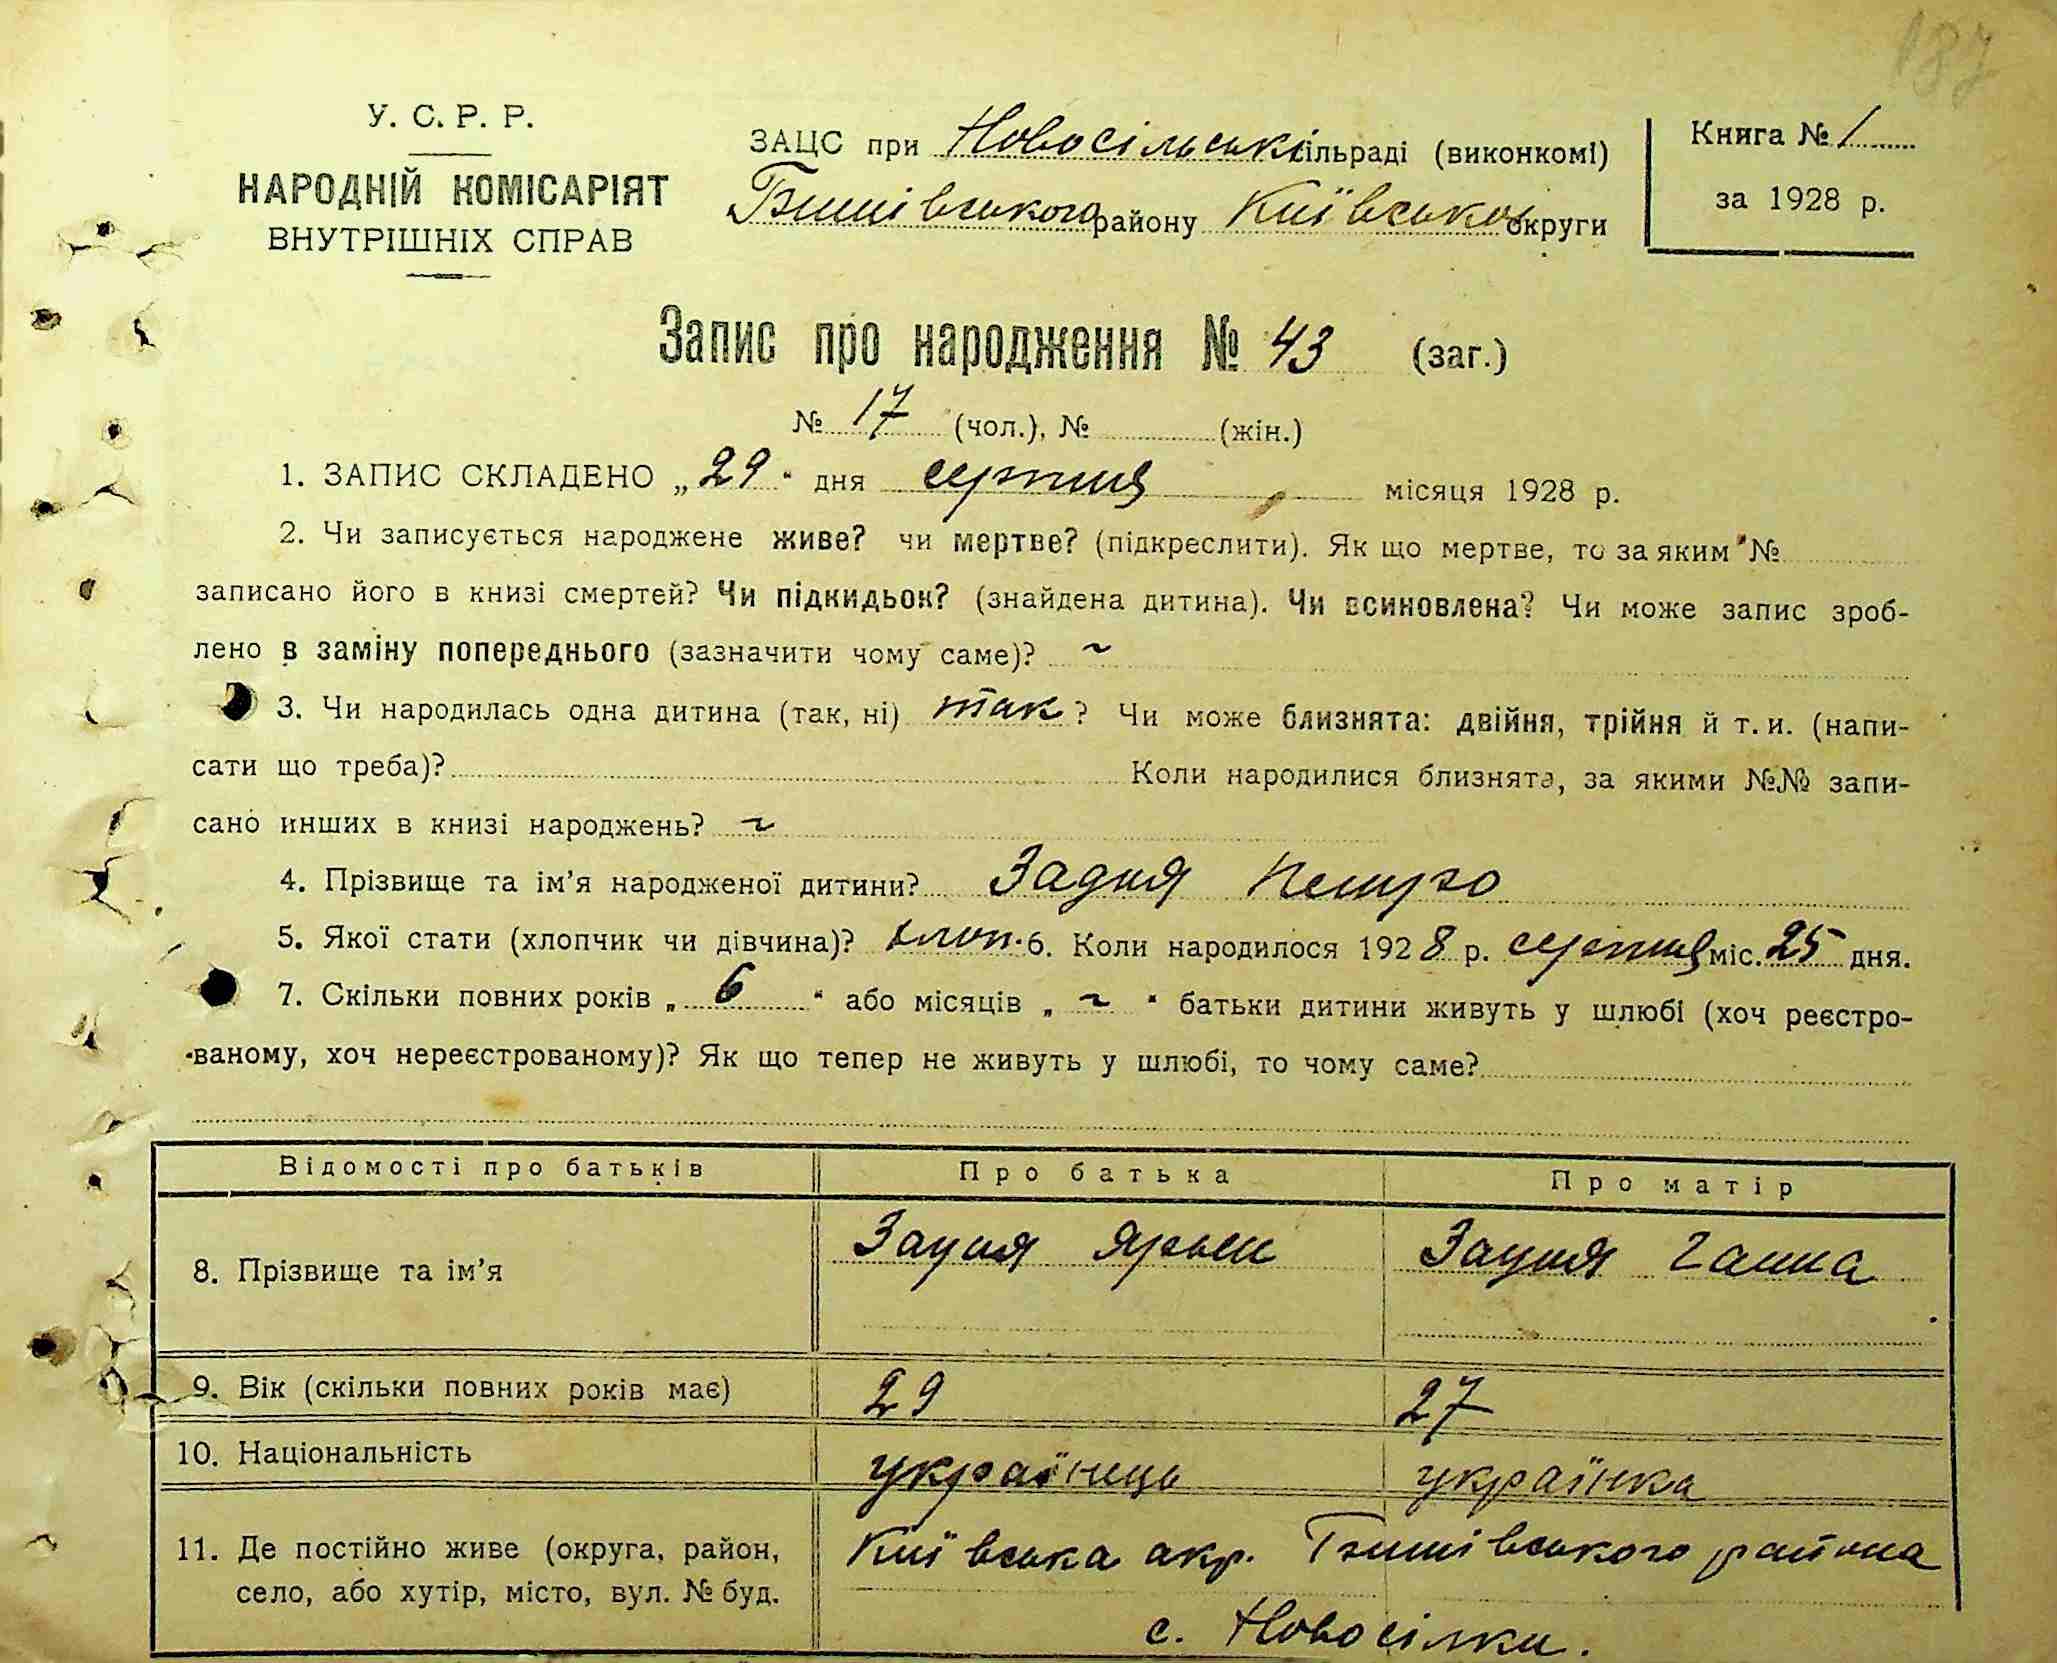 187
У. С. Р. Р.
НАРОДНІЙ КОМІСАРІЯТ
ВНУТРІШНІХ СПРАВ
ЗАЦС при Новосільські сільраді (виконкомі)
Бишівського району Київської округи
Книга № 1
за 1928 р.
Запис про народження № 43 (заг.)
№ 17 (чол.), № (жін.)
1. ЗАПИС СКЛАДЕНО „29“ дня серпня місяця 1928 р.
2. Чи записується народжене живе? чи мертве? (підкреслити). Як що мертве, то за яким №
записано його в книзі смертей? Чи підкидьок? (знайдена дитина). Чи всиновлена? Чи може запис зроб-
лено в заміну попереднього (зазначити чому саме)? ~
3. Чи народилась одна дитина (так, ні) так? Чи може близнята: двійня, трійня й т. и. (напи-
сати що треба)? Коли народилися близнята, за якими №№ запи-
сано инших в книзі народжень? ~
4. Прізвище та ім’я народженої дитини? Задня Петро
5. Якої стати (хлопчик чи дівчина)? хлоп. 6. Коли народилося 1928 р. серпня міс. 25 дня.
7. Скільки повних років „6“ або місяців „~“ батьки дитини живуть у шлюбі (хоч реєстро-
ваному, хоч нереєстрованому)? Як що тепер не живуть у шлюбі, то чому саме?
Відомості про батьків Про батька Про матір
8. Прізвище та ім’я Задня Ярьем Задня Ганна
9. Вік (скільки повних років має) 29 27
10. Національність українець українка
11. Де постійно живе (округа, район, Київська окр. Бишівського района
село, або хутір, місто, вул. № буд. с. Новосілки.